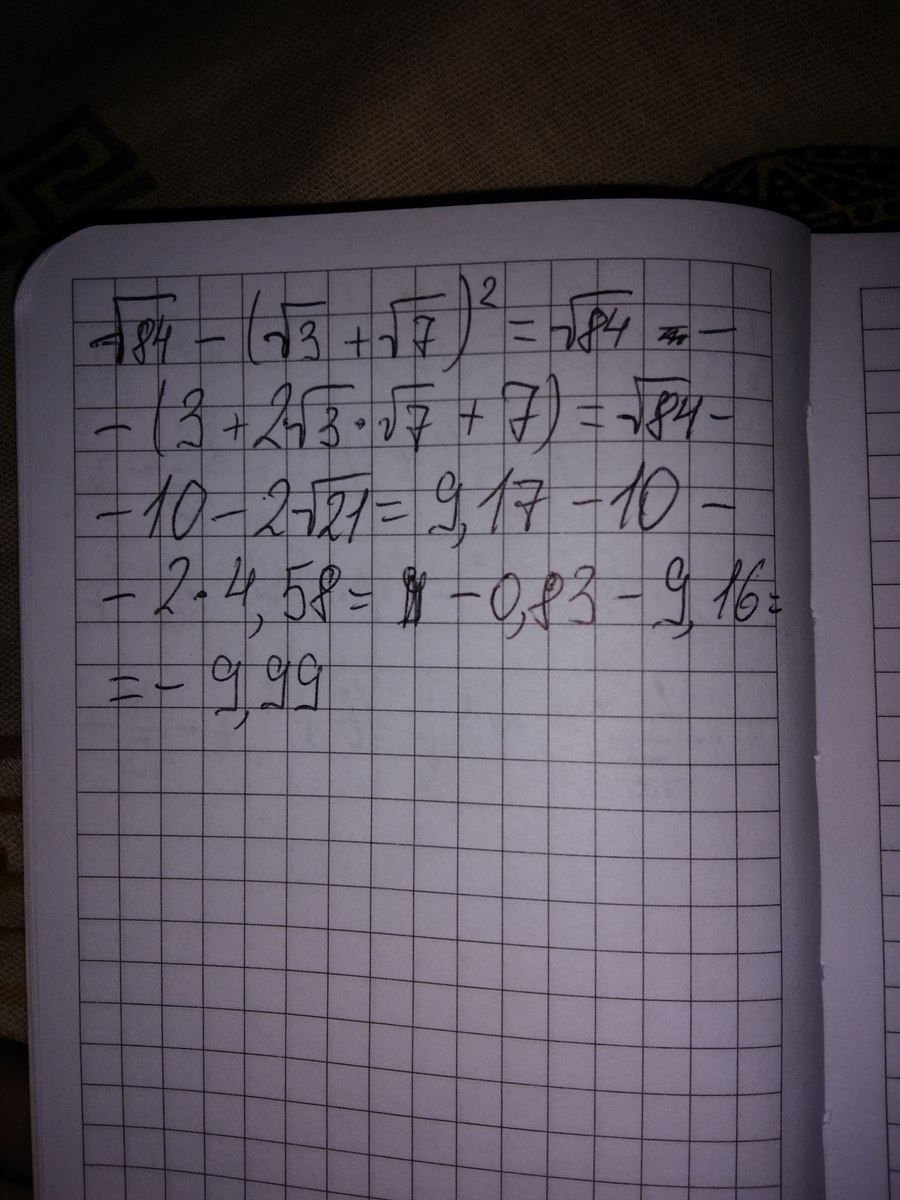 √84 − (√3 + √7)² = √84 −
− (3 + 2√3 · √7 + 7) = √84 −
− 10 − 2√21 = 9,17 − 10 −
− 2 · 4,58 = − 0,83 − 9,16 =
= − 9,99